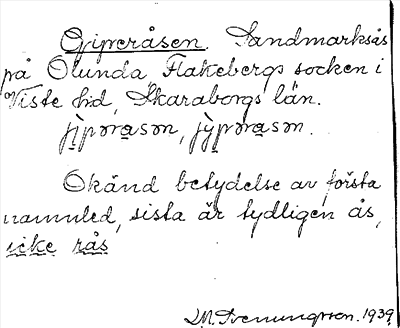 Giperåsen. Sandmarksås
på Ölunda, Flakebergs socken i
Viste hd, Skaraborgs län.
jìpəra̱sən, jỳpəra̱sən.
Okänd betydelse av första
namnled, sista är tydligen ås,
icke rås
1939